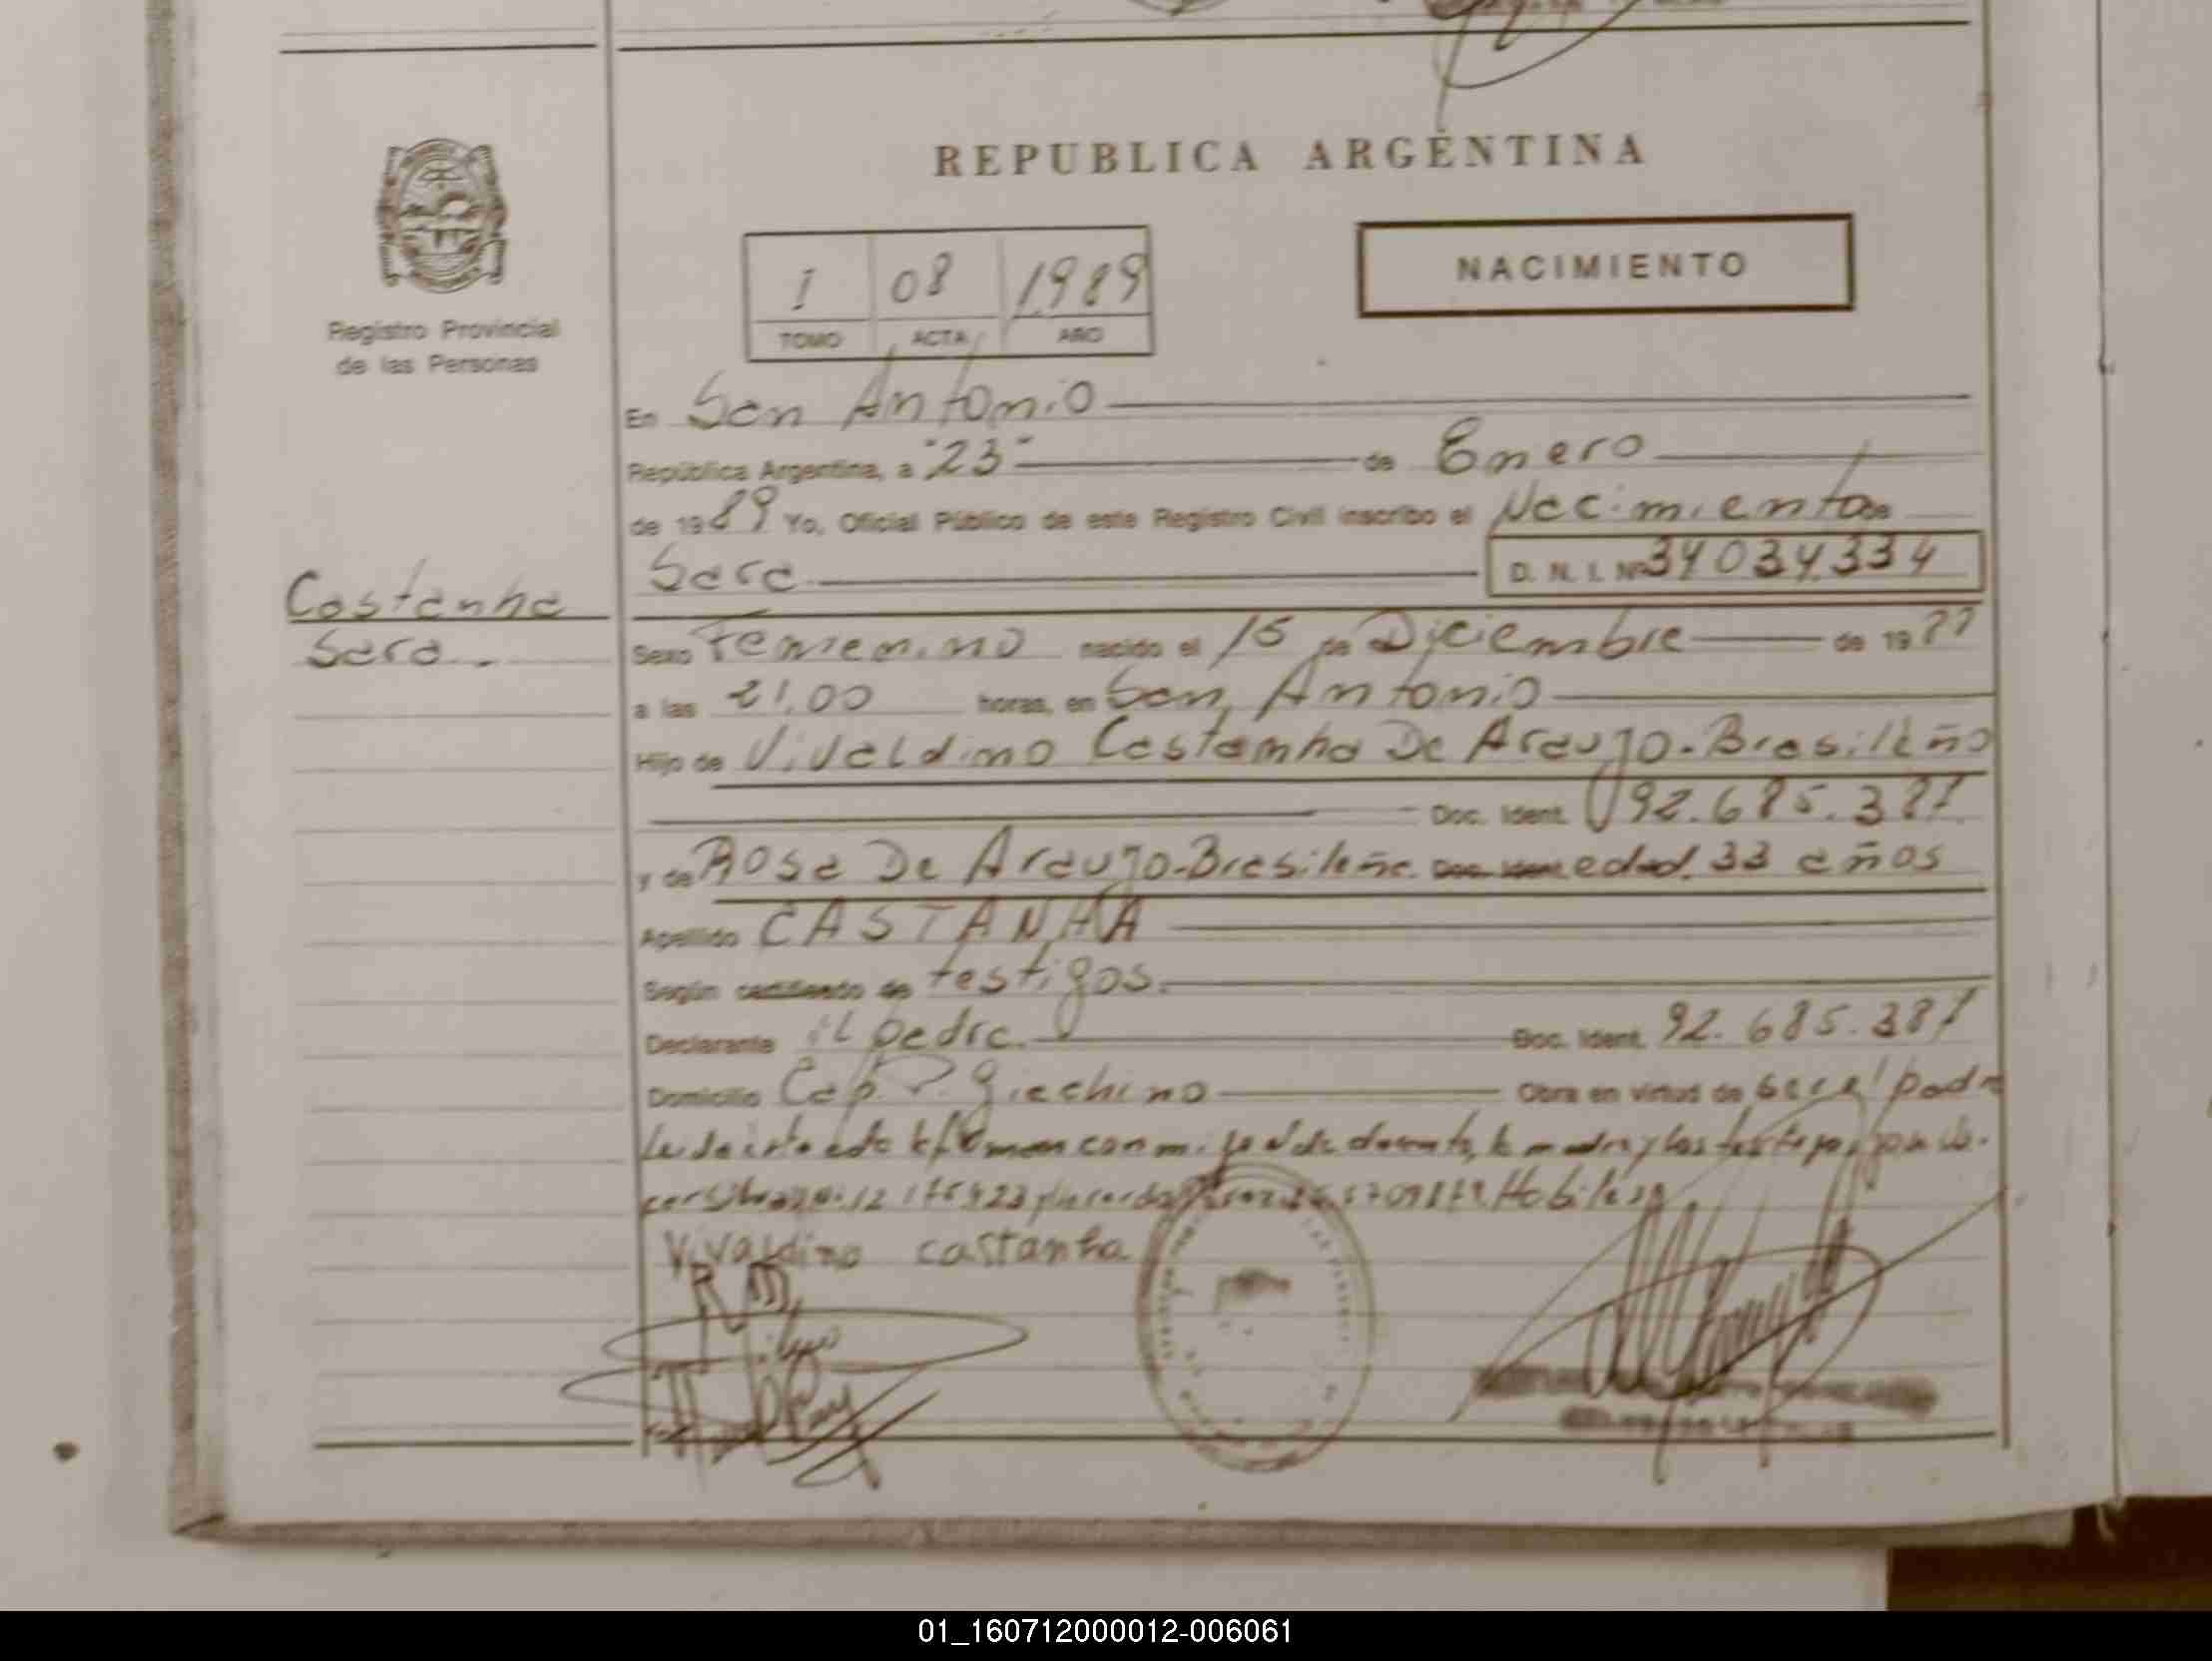 REPUBLICA ARGENTINA
NACIMIENTO
1 08 1989
TOMO ACTA AÑO
Registro Provincial
de las Personas
En San Antonio
República Argentina, a "23" de Enero
de 1989 Yo, Oficial Público de este Registro Civil inscribo el Nacimiento de
Sara D. N. I. Nº 34034.334
Costanha
Sara.
Sexo Femenino nacido el 15 de Diciembre de 19
a las 21,00 horas, en San Antonio
Hijo de Vivaldino Castanha De Araujo-Brasileño
Doc. Ident. 92.685.387
y de Rosa De Araujo-Brasileña Doc. Ident. edad. 33 años
Apellido CASTANHA
Según certificado de testigos.
Declarante el padre. Doc. Ident. 92.685.387
Domicilio Cap. P. Giachino Obra en virtud de ser el padre
Vivaldino castanha
01_160712000012-006061